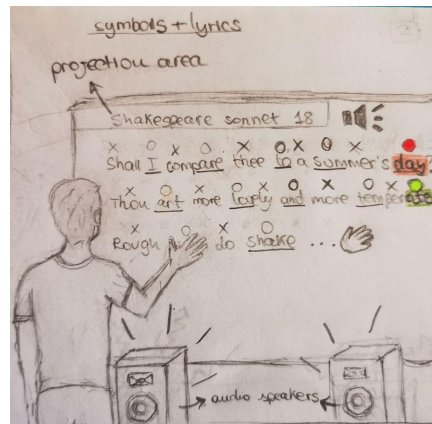 symbols + lyrics
projection area
Shakespeare sonnet 18
x o x o o x o x o x
Shall I compare thee to a summer's day
x o x o x o x o x
Thou art more lovely and more temperate
x o x o
Rough do shake ...
audio speakers